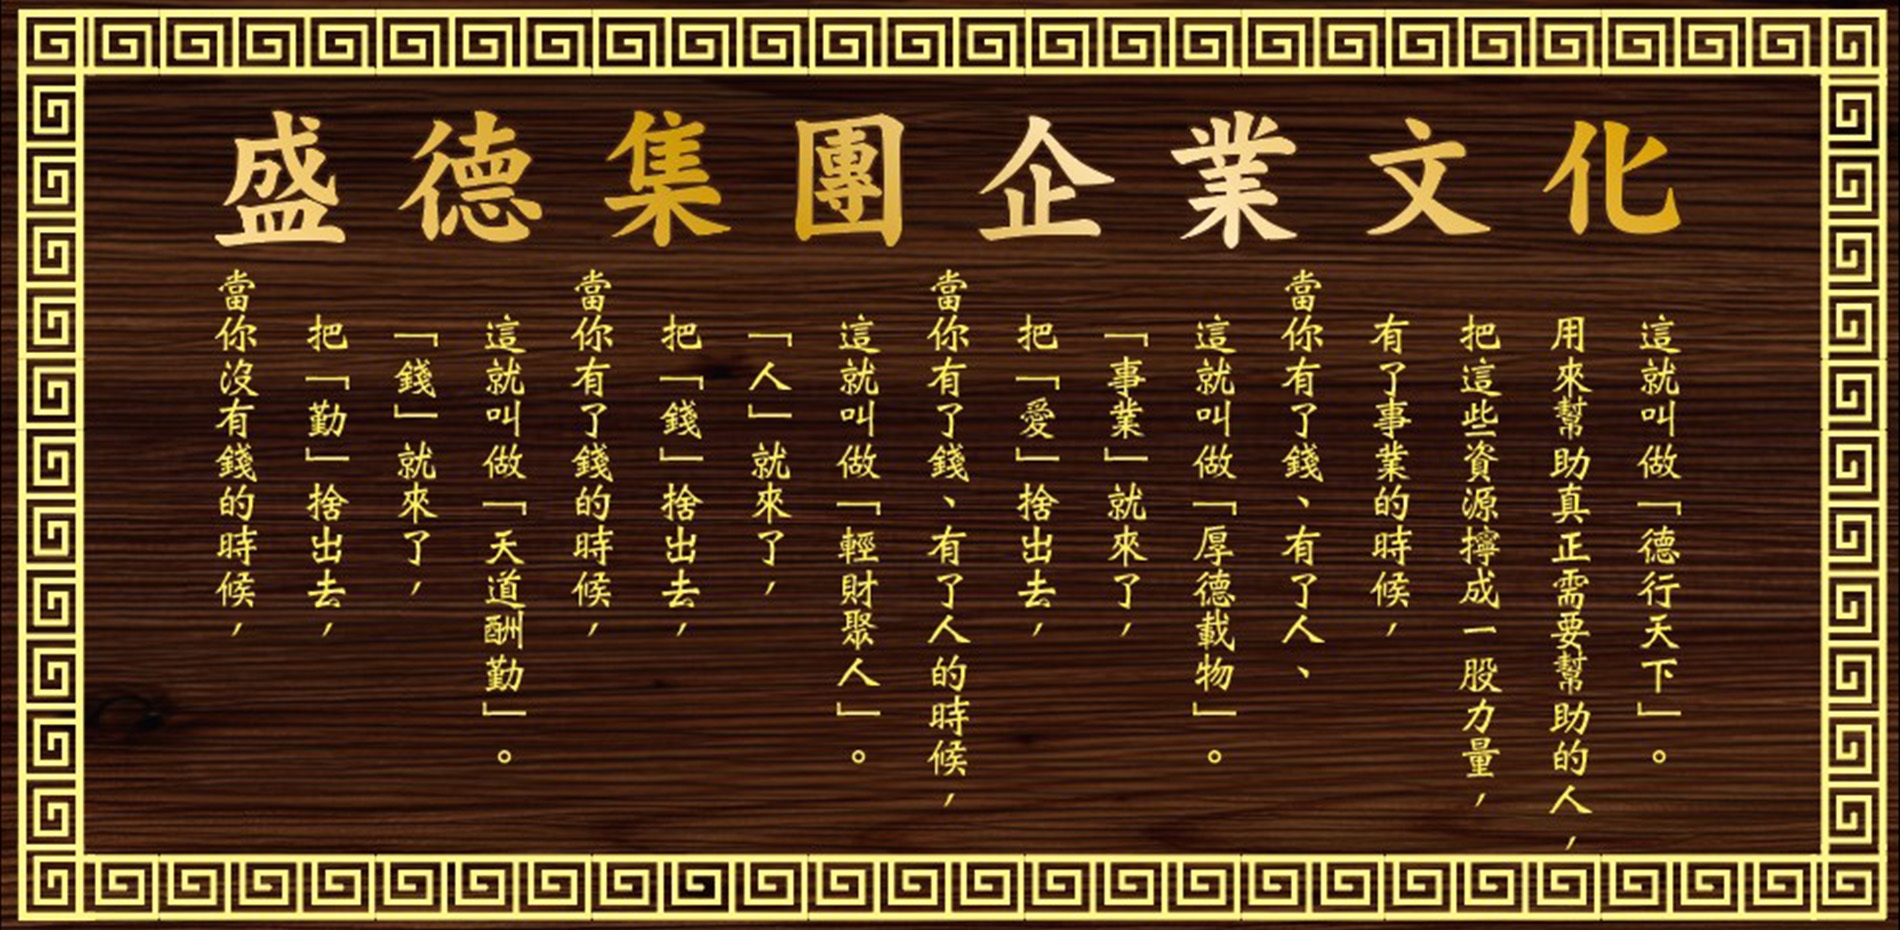 盛德集團企業文化
當你沒有錢的時候，
把「勤」捨出去，
「錢」就來了，
這就叫做「天道酬勤」。
當你有了錢的時候，
把「錢」捨出去，
「人」就來了，
這就叫做「輕財聚人」。
當你有了錢、有了人的時候，
把「愛」捨出去，
「事業」就來了，
這就叫做「厚德載物」。
當你有了錢、有了人、
有了事業的時候，
把這些資源擰成一股力量，
用來幫助真正需要幫助的人，
這就叫做「德行天下」。